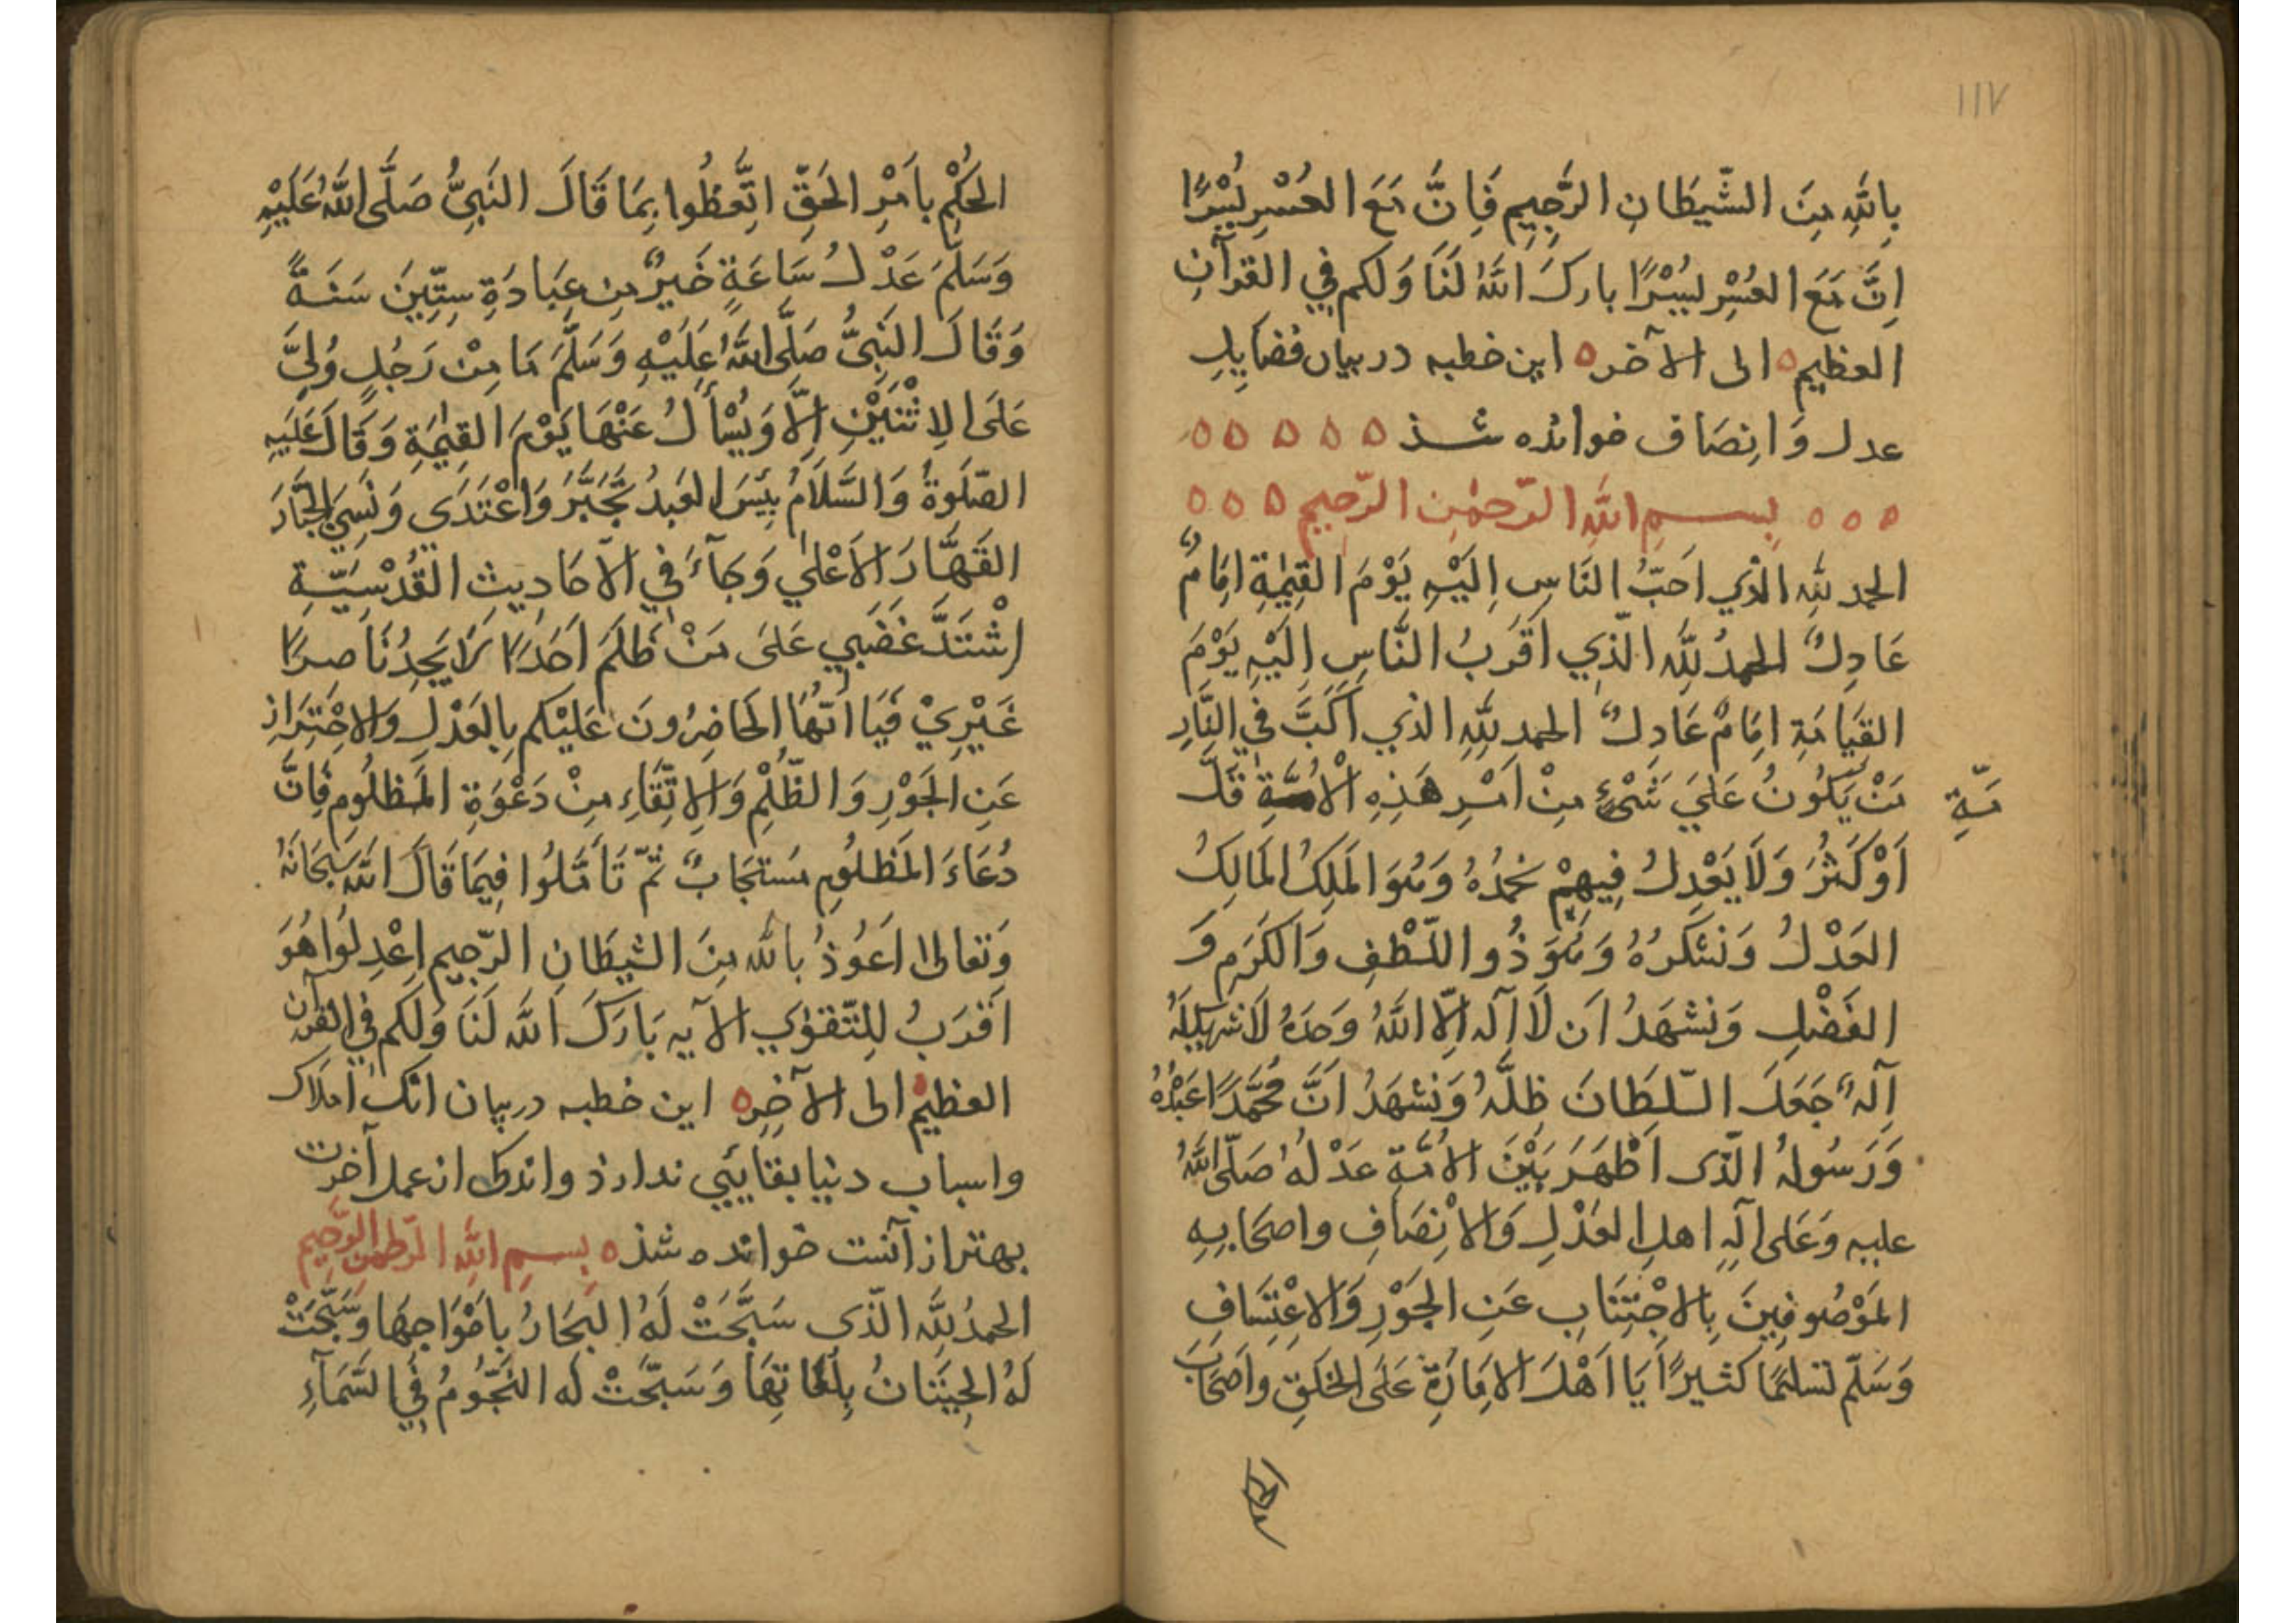 ١١٧
بِاللّٰهِ مِنَ الشَّيطَانِ الرَّجِيمِ فَاِنَّ مَعَ العُسْرِ يُسْرًا
اِنَّ مَعَ العُسْرِ يُسْرًا بارك اللّٰهُ لَنَا وَلكم فِي القرآنِ
العظيم ه الى الآخر ه اين خطبه در بيان فضايِلِ
عدل وَانِصَاف خوانده شذ ه ه ه ه ه
ه ه ه بِسمِ اللّٰهِ الرّحمٰنِ الرّحيمِ ه ه ه
الحمد للّٰهِ الذي احَبّ النَاسِ اِلَيْهِ يَوْمَ القِيٰمَةِ اِمَامٌ
عَادِلٌ الحمدُ لِلّٰهِ الّذِي اَقرَبُ النَّاسِ اِلَيْهِ يَوْمَ
القيَامَةِ اِمَامٌ عَادِلٌ الحمد لِلّٰهِ الذي اَكَبَّ فِي النَّارِ
مَنْ يَكُونُ عَلَي شَيْءٍ مِنْ اَمْرِ هَذِهِ الْاُمَّةِ قَلَّ
مّةِ
اَوْ كَثُرَ وَلَا يَعْدِلُ فِيهِمْ نحمَدُهُ وَهُوَ المَلِكُ المَالِكُ
العَدْلُ وَنَشكرُهُ وَهُوَ ذُو اللّطْفِ وَالكَرَمِ وَ
الفَضْلِ وَنَشهَدُ اَن لَا اِلٰه اِلّا اللّٰهُ وَحدَهُ لَا شريك لَهُ
اِلٰهٌ جَعَلَ السّلطَانَ ظِلَّهُ وَنَشهَدُ اَنَّ مُحَمَّدًا عَبْدُهُ
وَرَسُولهُ الّذى اَظْهَرَ بَيْنَ الاُمّةِ عَدْلهُ صَلّى اللّٰهُ
عليهِ وَعَلى آلِهِ اهلِ العَدْلِ وَالاِنْصَافِ واصحَابِهِ
المَوْصُوفِينَ بِالاِجْتِنَابِ عَنِ الجَوْرِ وَالاِعْتِسَافِ
وَسَلّم تسليمًا كثيرًا يَا اَهْلَ الاِمَارَةِ عَلَى الخلقِ واَصحَابَ
الحُكْمِ بِاَمْرِ الحَقِّ اتَّعِظُوا بِمَا قَالَ النَبِيُّ صَلَّى اللّٰهُ عَلَيْهِ
وَسَلّمَ عَدْلُ سَاعَةٍ خَيرٌ مِن عِبَادَةِ سِتِّينَ سَنَةً
وَقَالَ النَبِىُّ صَلَّى اللّٰهُ عَلَيْهِ وَسَلَّمَ مَا مِنْ رَجُلٍ وُلِيَّ
عَلَى الاِثْنَيْنِ اِلَّا وَيُسْأَلُ عَنْهَا يَوْمَ القِيٰمَةِ وَقَالَ عَلَيهِ
الصّلَوةُ وَالسَّلَامُ بِئْسَ العَبدُ تَجَبَّرَ وَاعْتَدَي وَنَسِيَ الجَبَّارَ
القَهَّارَ الاَعْلي وَجَآءَ فِي الاَحَادِيثِ القُدْسِيَّةِ
اِشْتَدَّ غَضَبِي عَلَى مَنْ ظَلَمَ اَحَدًا لَا يَجِدُ نَاصرًا
غَيْرِيْ فَيَا اَيّهَا الحَاضِرُونَ عَلَيْكم بِالعَدْلِ وَالاِحْتِرَازِ
عَنِ الجَوْرِ وَالظّلْمِ وَالاِتِّقَاءِ مِنْ دَعْوَةِ المَظلُومِ فَاِنَّ
دُعَاءَ المَظلُومِ مُستجَابٌ ثمّ تَأَمَّلُوا فِيمَا قَالَ اللّٰه سبحَانَهُ
وَتعالى اَعُوذُ باللّٰه مِنَ الشيطَانِ الرّجيم اِعْدِلُوا هُوَ
اَقرَبُ لِلتّقوٰي الآيه بَارَكَ اللّٰه لَنَا وَلَكم فِي القرآن
العظيم ه الى الآخرِ ه اين خطبه در بيان انك املاك
واسباب دنيا بقايئي ندارذ واندك از عمل آخرت
بهتر از آنست خوانده شذ ه بسمِ اللّٰهِ الرّحمٰن الرّحِيم
الحمدُ لِلّٰه الّذى سَبَّحَتْ لَهُ البِحَارُ بِامْوَاجِهَا وَسَبَّحَتْ
لَهُ الحِيتَانُ بِلُغَاتِهَا وَسَبّحَتْ لَه النّجُومُ فِي السَّمَآءِ